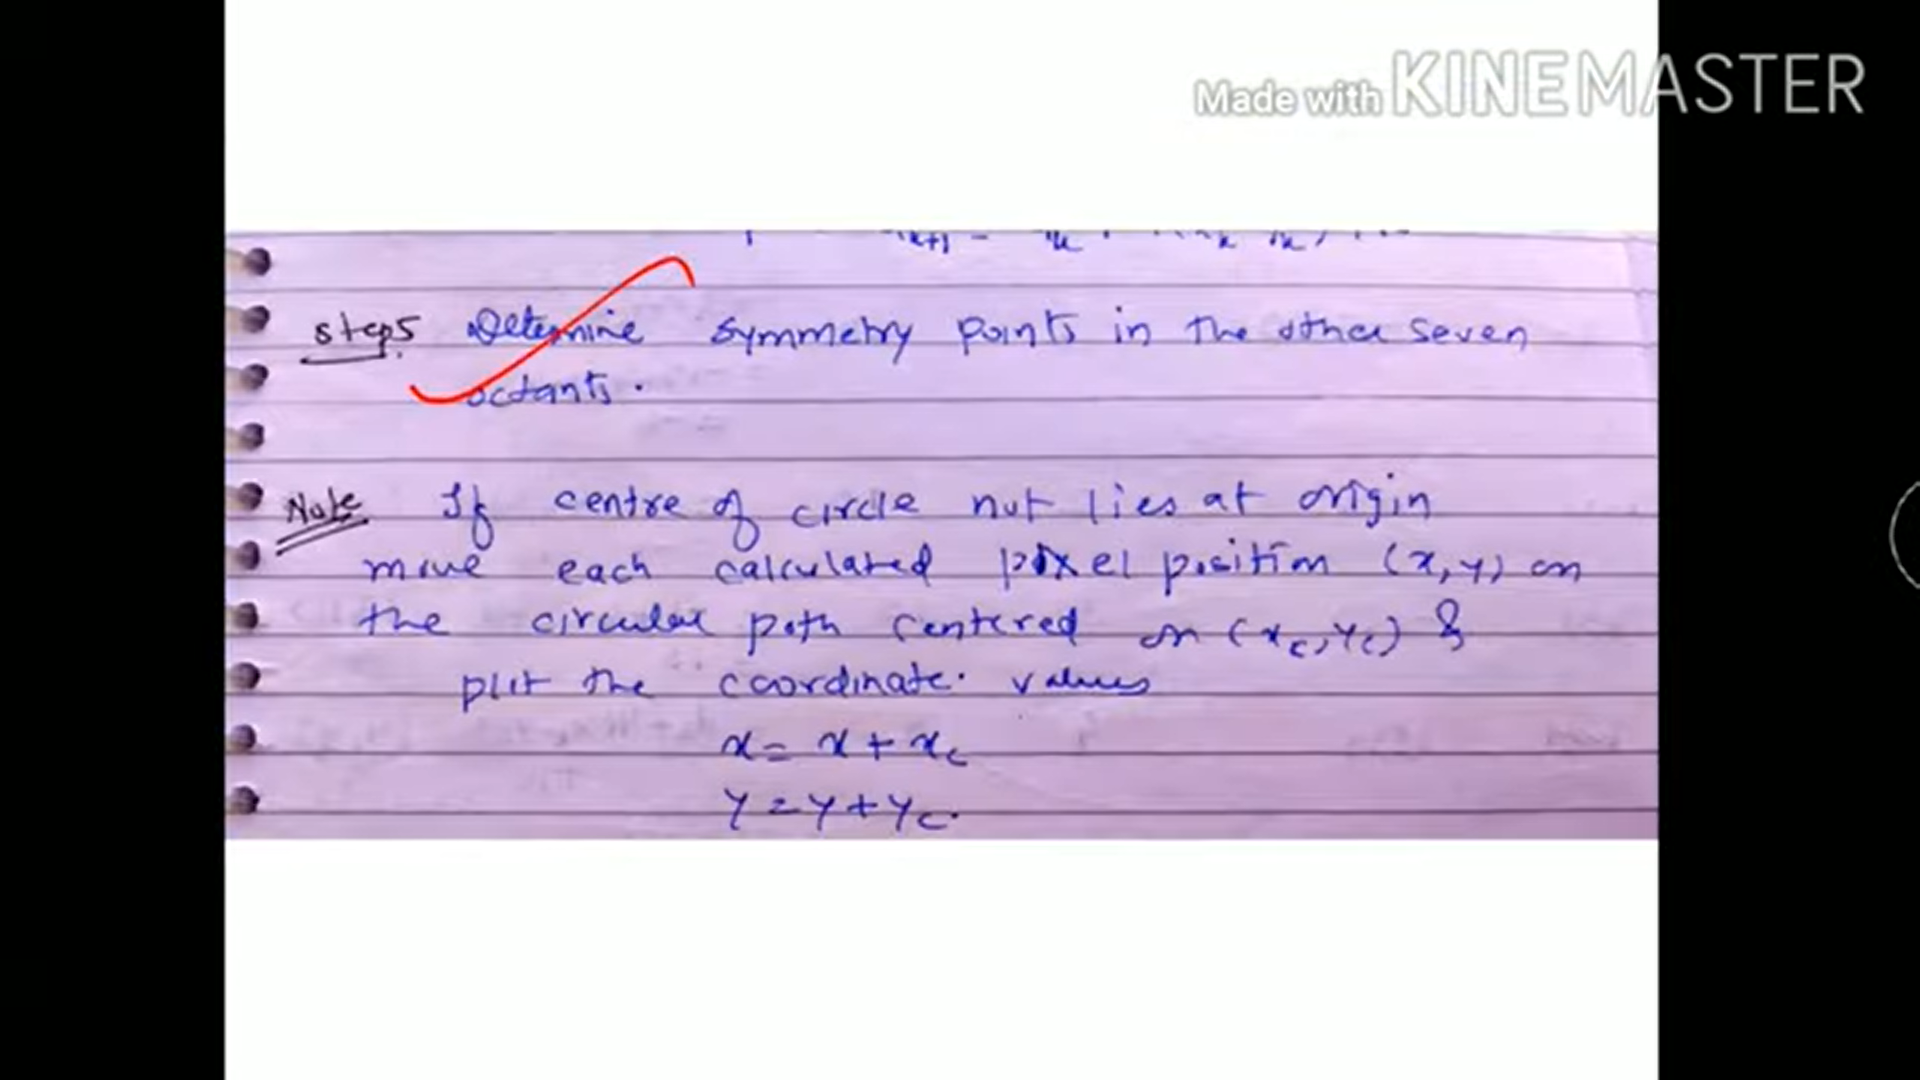 Made with KINEMASTER
step5 Determine symmetry points in the other seven
octants.
Note If centre of circle not lies at origin
move each calculated pixel position (x,y) on
the circular path centered on (xc,yc) &
plot the coordinate. values
x = x + xc
y = y + yc.